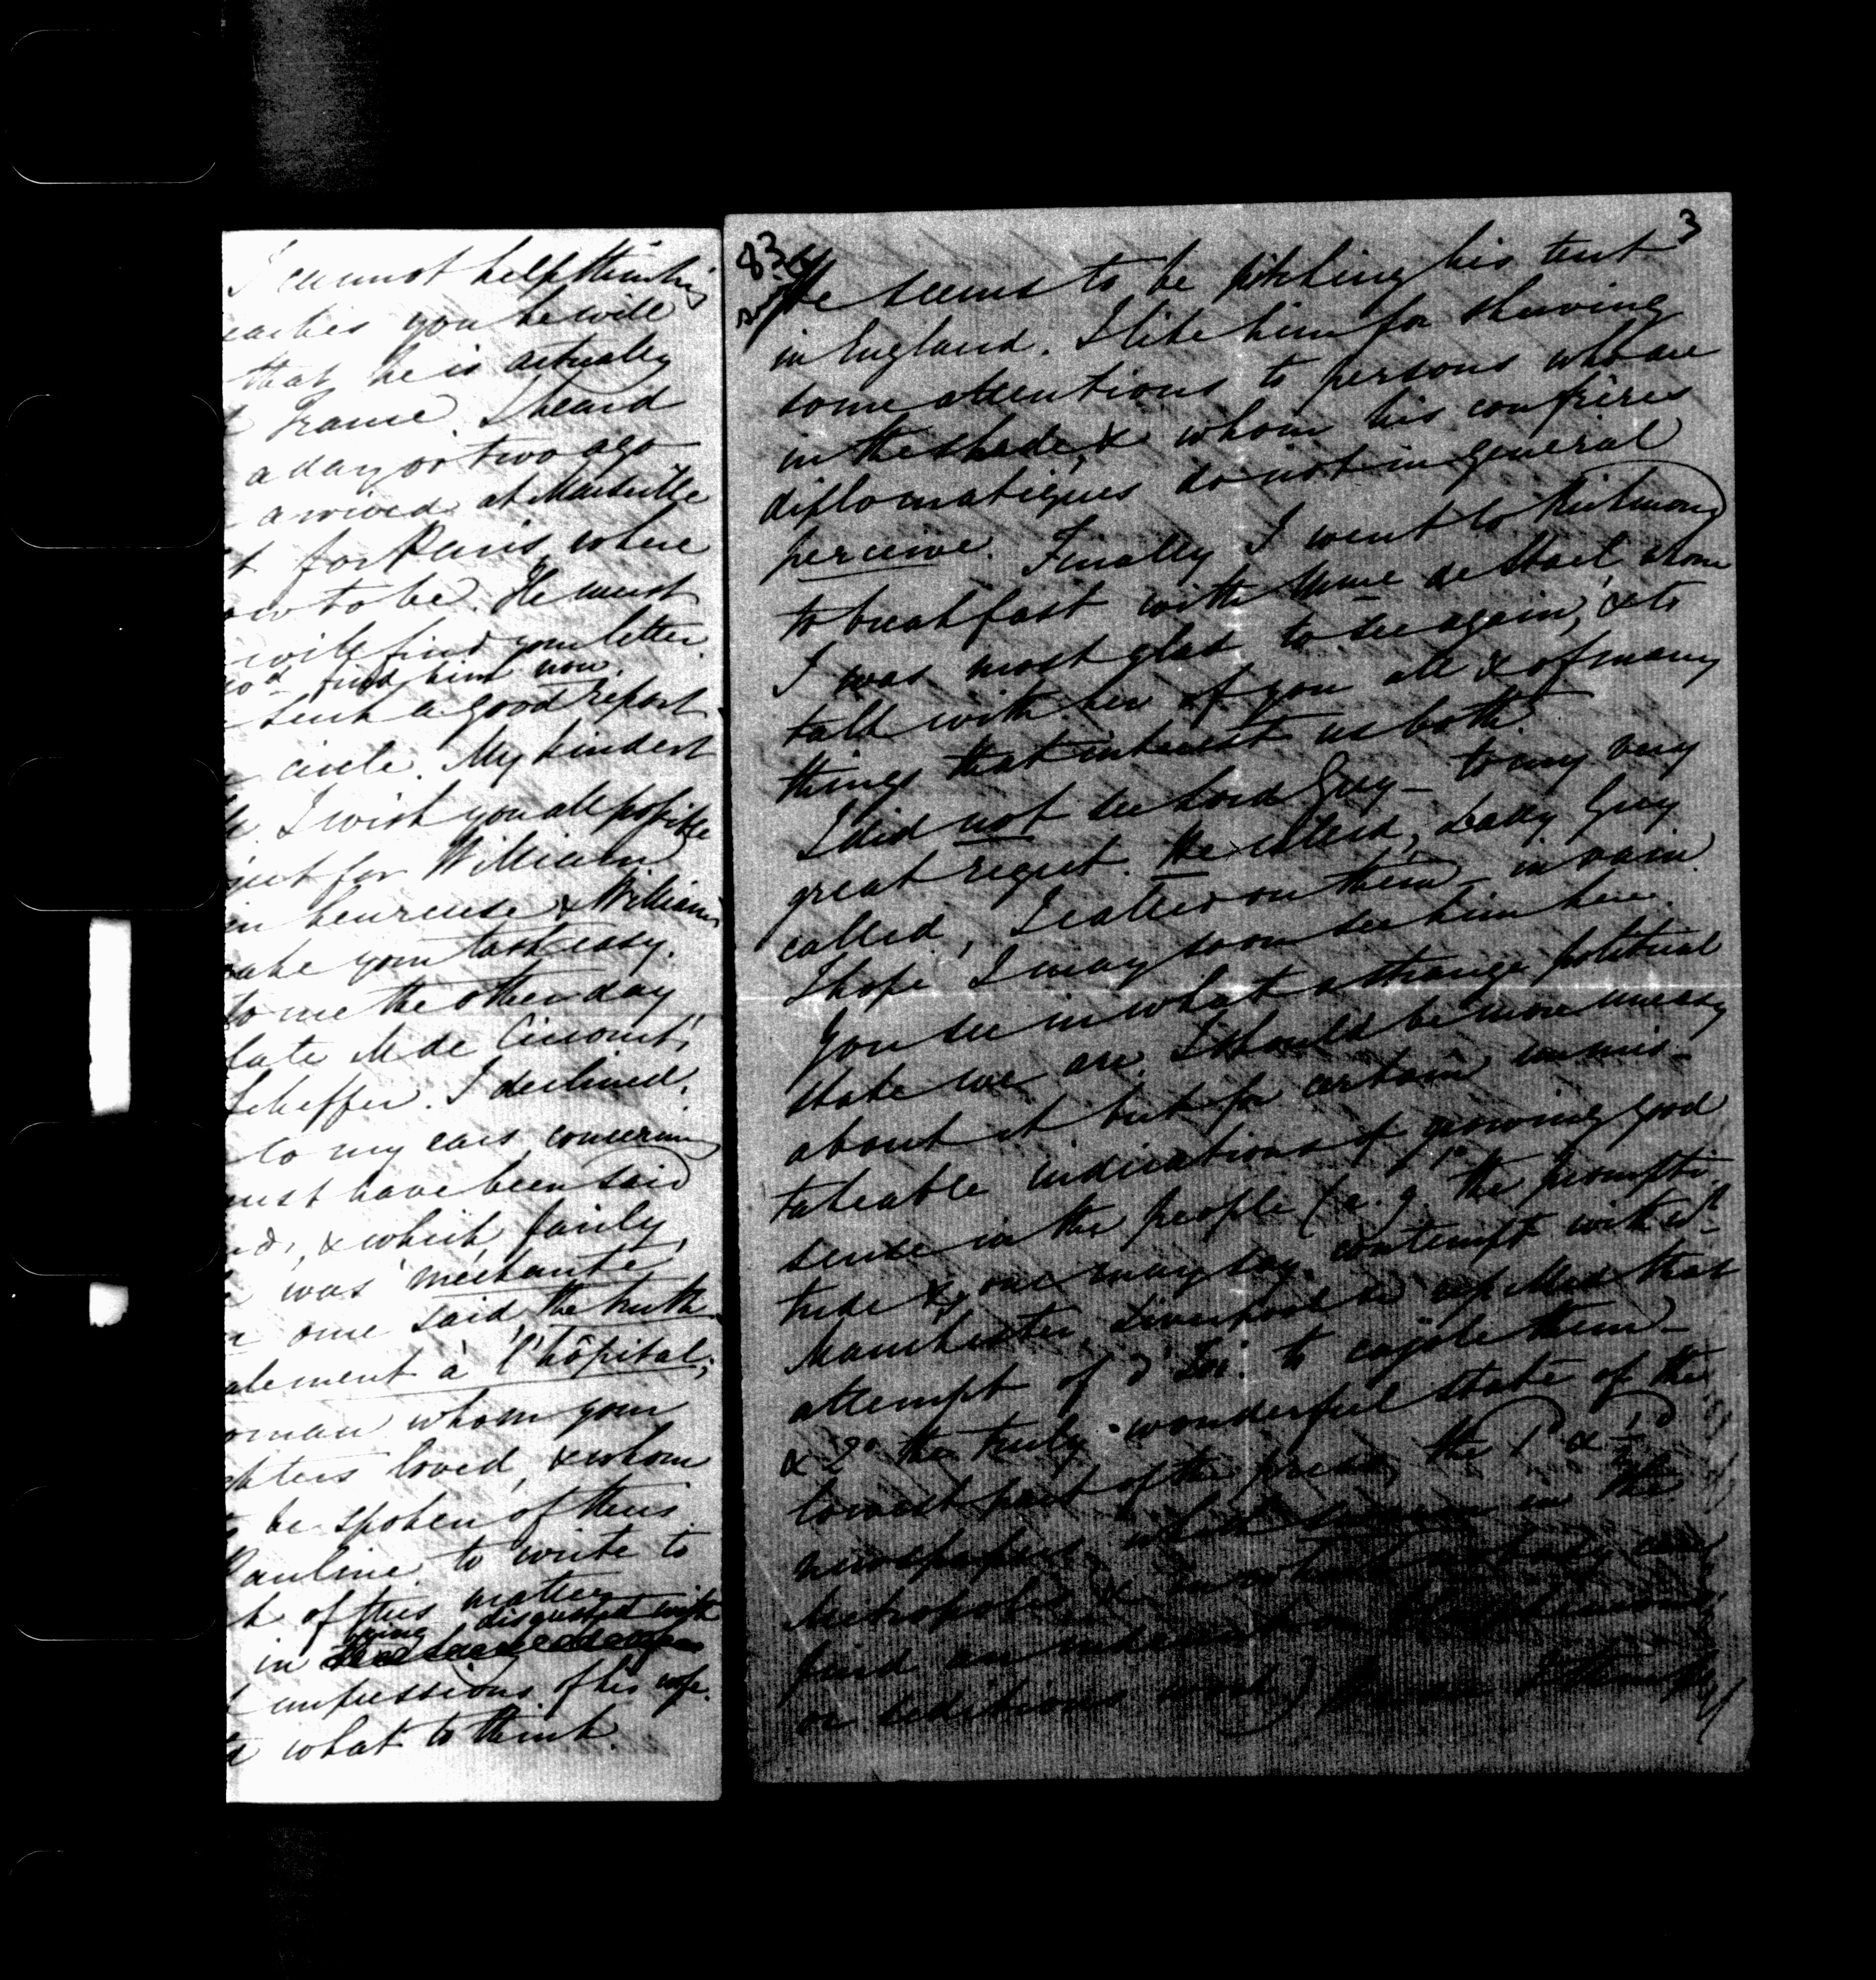 I cannot help thinking
eaches you he will
that he is actually
France. I heard
a day or two ago
arrived at Marseille
t for Paris, where
ow to be. He must
will find your letter.
find him now.
such a good report
circle. My kindest
I wish you all possible
for William
heureuse & William
ake your task easy.
to me the other day
late M de Circourt,
Scheffer. I declined.
to my ears concerning
ust have been said
& which fairly
was méchante,
one said the truth
alement à l'hôpital;
oman whom your
ghters loved, & whom
be spoken of thus.
Pauline to write to
h of this matter
being disgusted with
in
impressions of his wife.
what to think.
83
3
He seems to be pitching his tent
in England. I like him for shewing
some attentions to persons who are
in the shade, & whom his confrères
diplomatiques do not in general
perceive. Finally I went to Richmond
to breakfast with Mme de Stael whom
I was most glad to see again, & to
talk with her of you all & of many
things that interest us both.
I did not see Lord Grey – to my very
great regret. He called, Lady Grey
called, I called on them – in vain.
I hope I may soon see him here.
You see in what a strange political
state we are. I should be more uneasy
about it but for certain unmis-
takeable indications of growing good
sense in the people (e.g. 1° the prompti
tude & one may say contempt with wh
Manchester, Liverpool &c repelled that
attempt of to cajole them –
& 2° the truly wonderful state of the
lowest part of the press, the 1d & ½d
newspapers which swarm in the
Metropolis, & in which nobody can
find an indecent or blasphemous,
or seditious word)